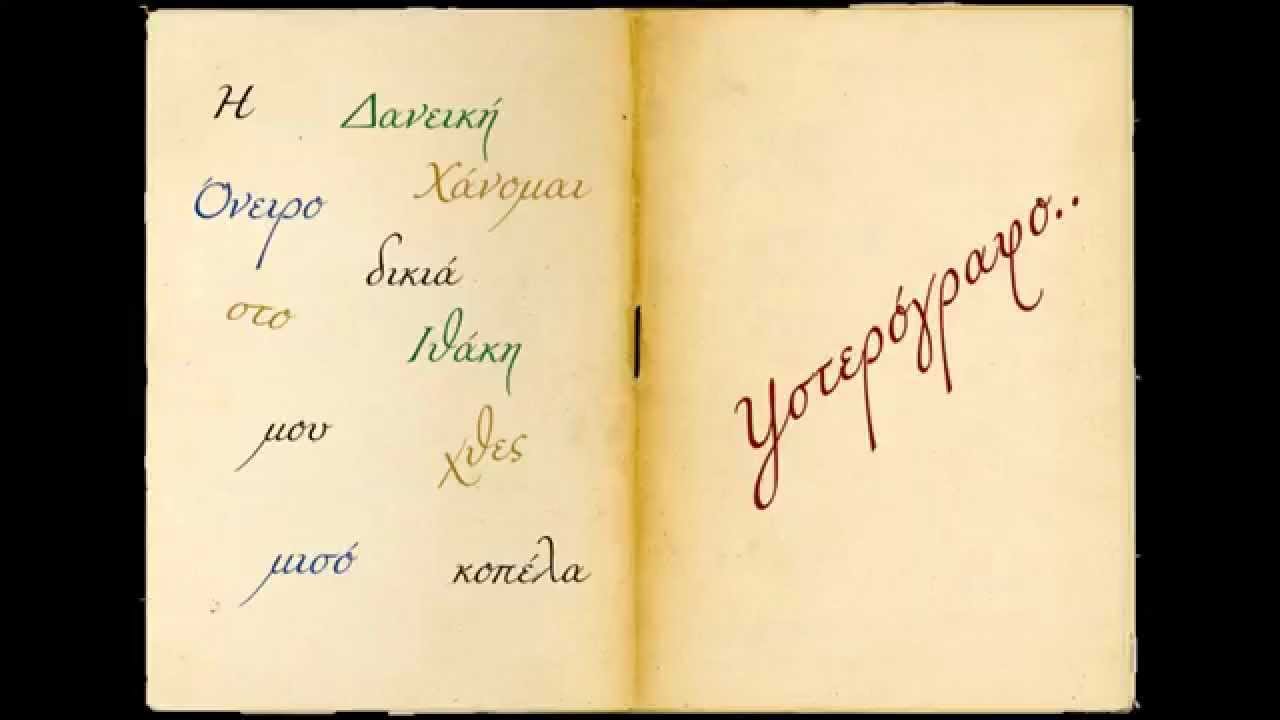 Η Δανεική
Όνειρο Χάνομαι
δικιά
στο Ιθάκη
μου χθες
μισό κοπέλα
Υστερόγραφο..